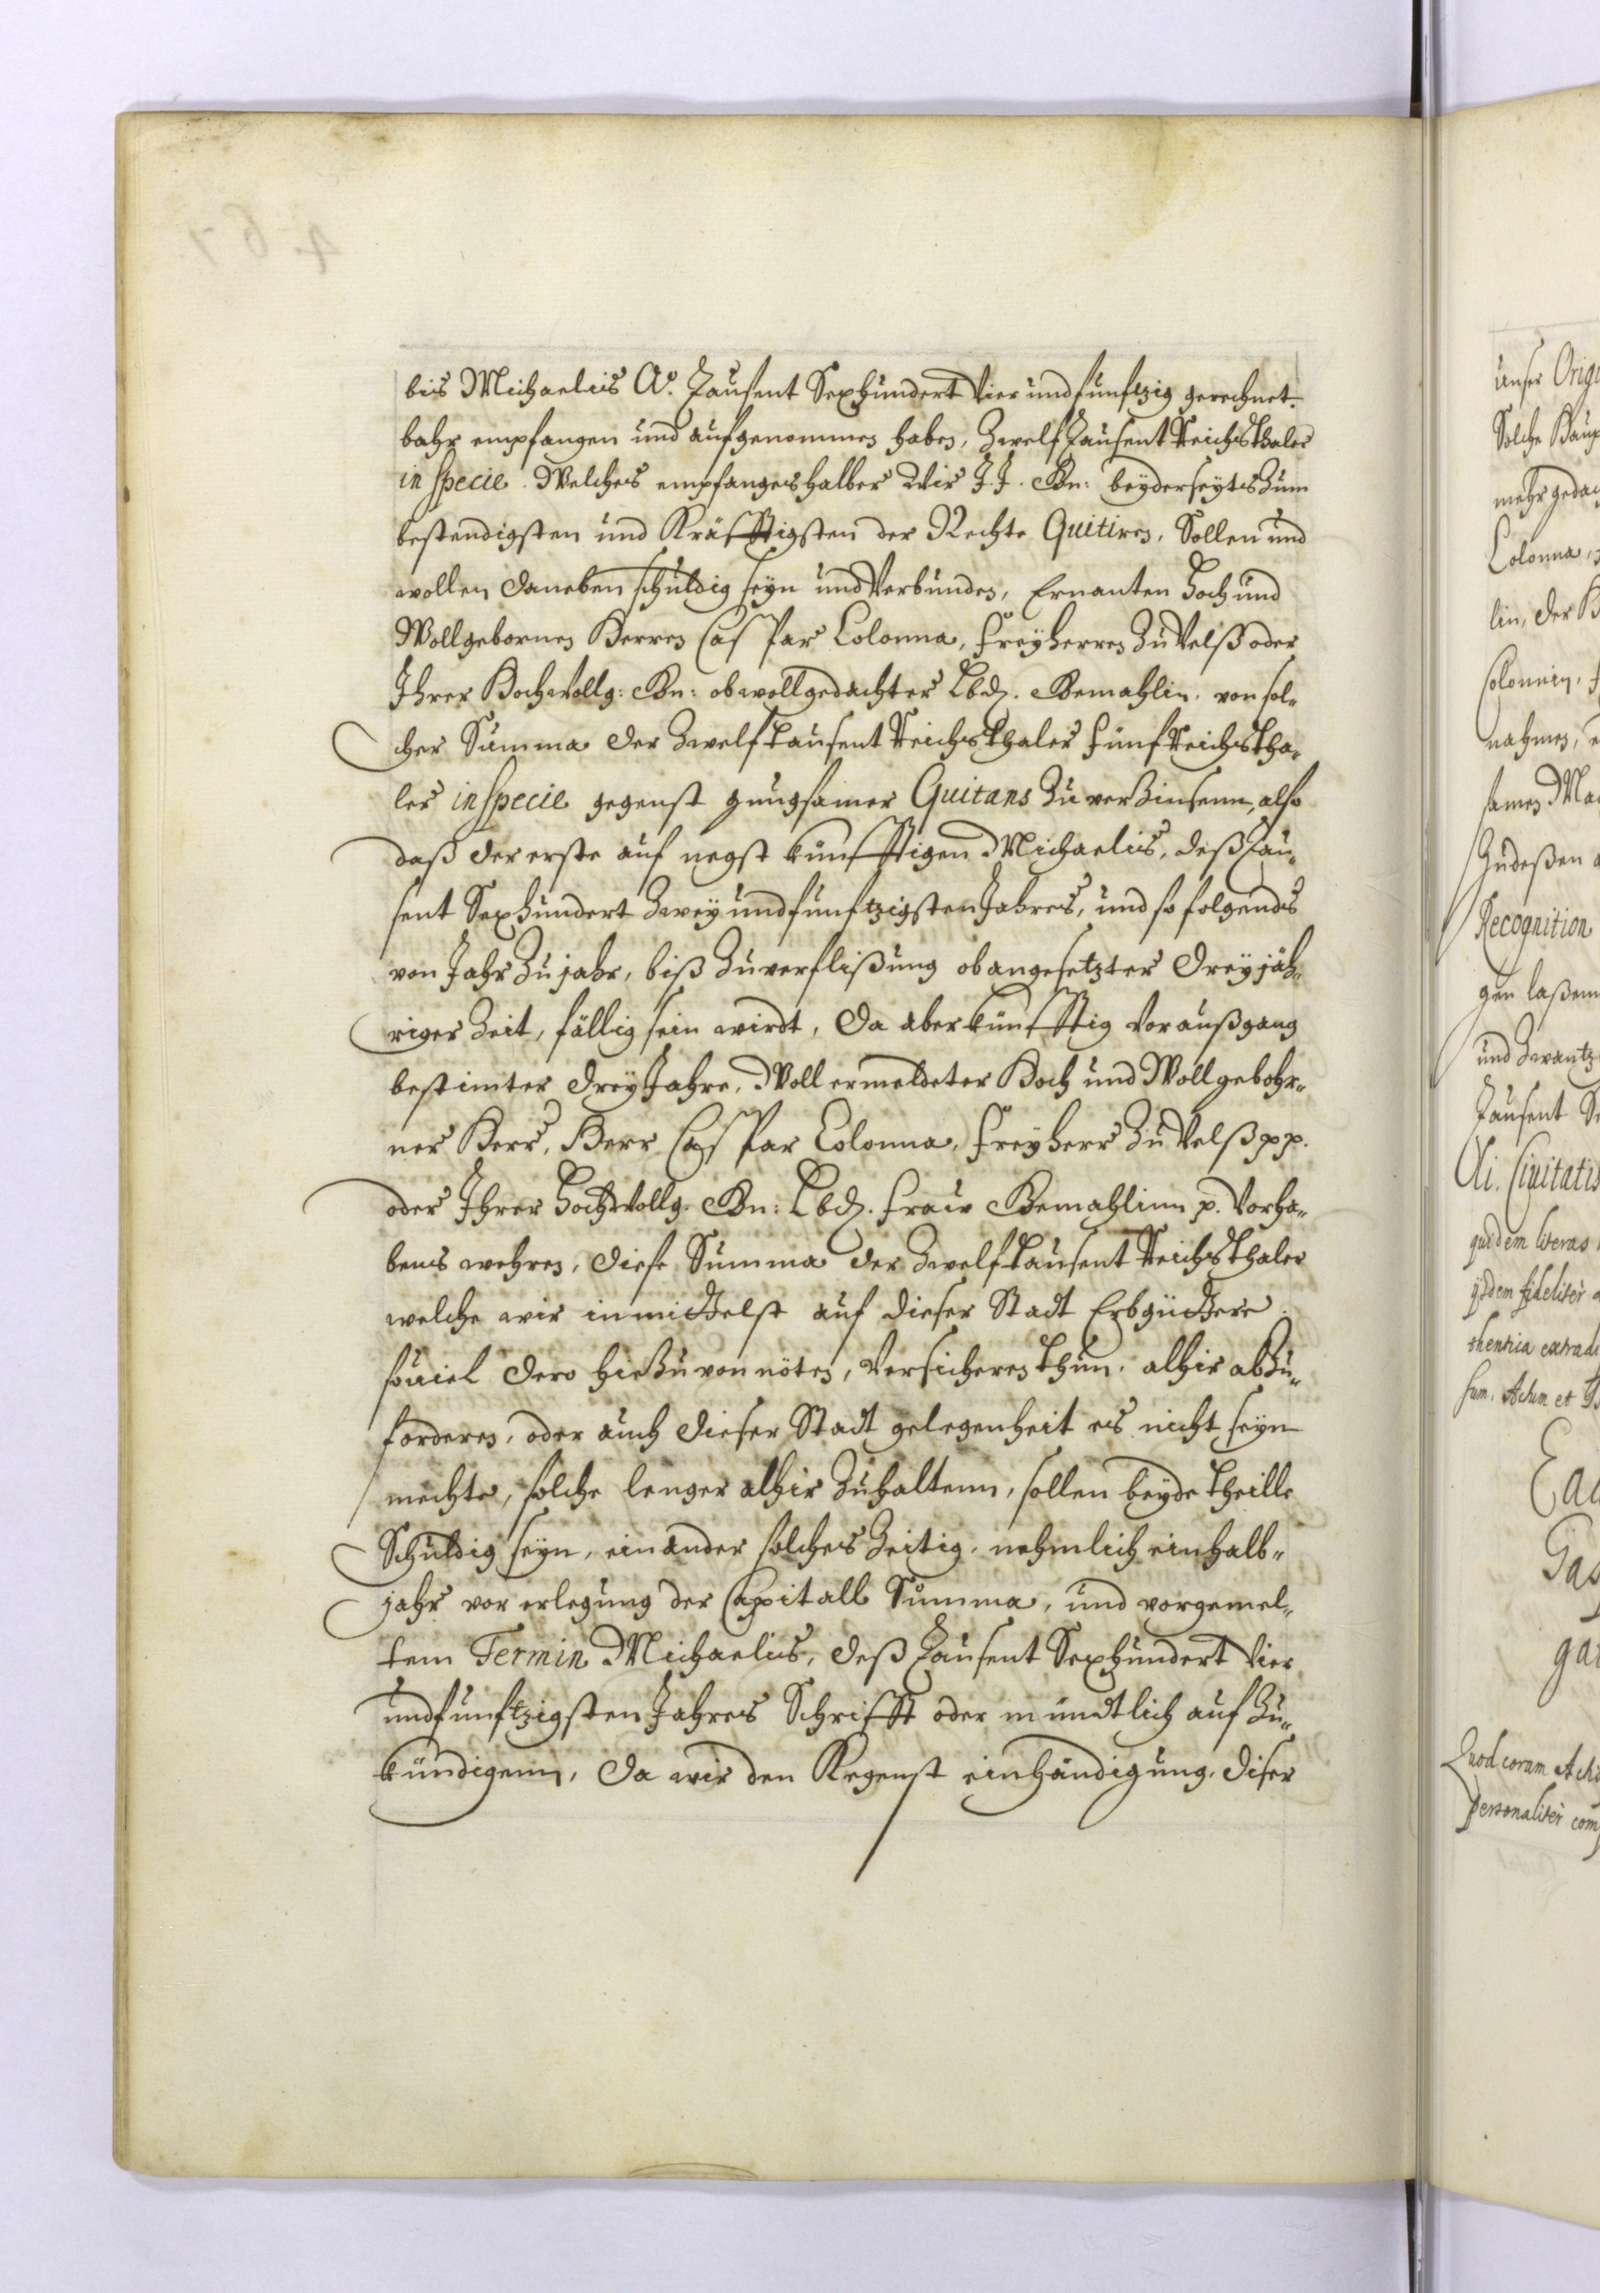 bis Michaelis Ao. Tausent Sexhundert Vier und funftzig gerechnet.
bahr empfangen und aufgenommen haben, Zwelf Tausent Reichsthaler
in specie. Welches empfanges halber Wir J. J. Gn: beyderseyts Zum
bestendigsten und Kräfftigsten der Rechte Quitiren, Sollen und
wollen daneben schuldig seyn und Verbunden, Ernanten Hoch und
Wollgebornen Herren Caspar Colonna, Freyherren Zu Velß oder
Ihrer Hochwollg: Gn: obwollgedachter Lbd. Gemahlin, von sol-
cher Summa der Zwelf tausent Reichsthaler Fünf Reichstha-
ler in specie gegenst gnugsamer Quitans Zu verZinsenn, also
daß der erste auf negst künfftigen Michaelis, deß Tau-
sent Sexhundert Zwey und funftzigsten Jahres, und so folgends
von Jahr Zu jahr, biß Zu verflißung obangesetzter Dreyjäh-
riger Zeit, fällig sein wirdt, Da aber künfftig Vor außgang
bestimter Drey Jahre, Woll ermeldeter Hoch und Wollgebohr-
ner Herr, Herr Caspar Colonna, Freyherr Zu Velß pp.
oder Ihrer Hochwollg. Gn: Lbd. Fraw Gemahlinn p. Vorha-
bens wehren, diese Summa der Zwelf tausent Reichsthaler
welche wir inmittelst auf dieser Stadt Erbgüttere
souiel dero hieZu von nöten, Versicheren thun, alhir abZu-
forderen, oder auch dieser Stadt gelegenheit es nicht seyn
mechte, solche lenger alhir Zuhaltenn, sollen beyde theille
Schuldig seyn, einander solches Zeitig, nehmlich ein halb-
jahr vor erlegung der Capitall Summa, und vorgemel-
tem Termin Michaelis, deß Tausent Sexhundert Vier
und funftzigsten Jahres Schrifft oder mündtlich auf Zu-
kündigenn, Da wir den Kegenst einhändigung diser
unser Orig
Solche Haup
mehrgedac
Colonna,
lin, der H
Colonnin,
nahmen,
samen Ma
Zudeßen
Recognition
gen laßenn
und Zwantz
Tausent Se
Ciuitatis
literas
fideliter
thentica extrad
sum. Actum et
Quod coram Act
personaliter com